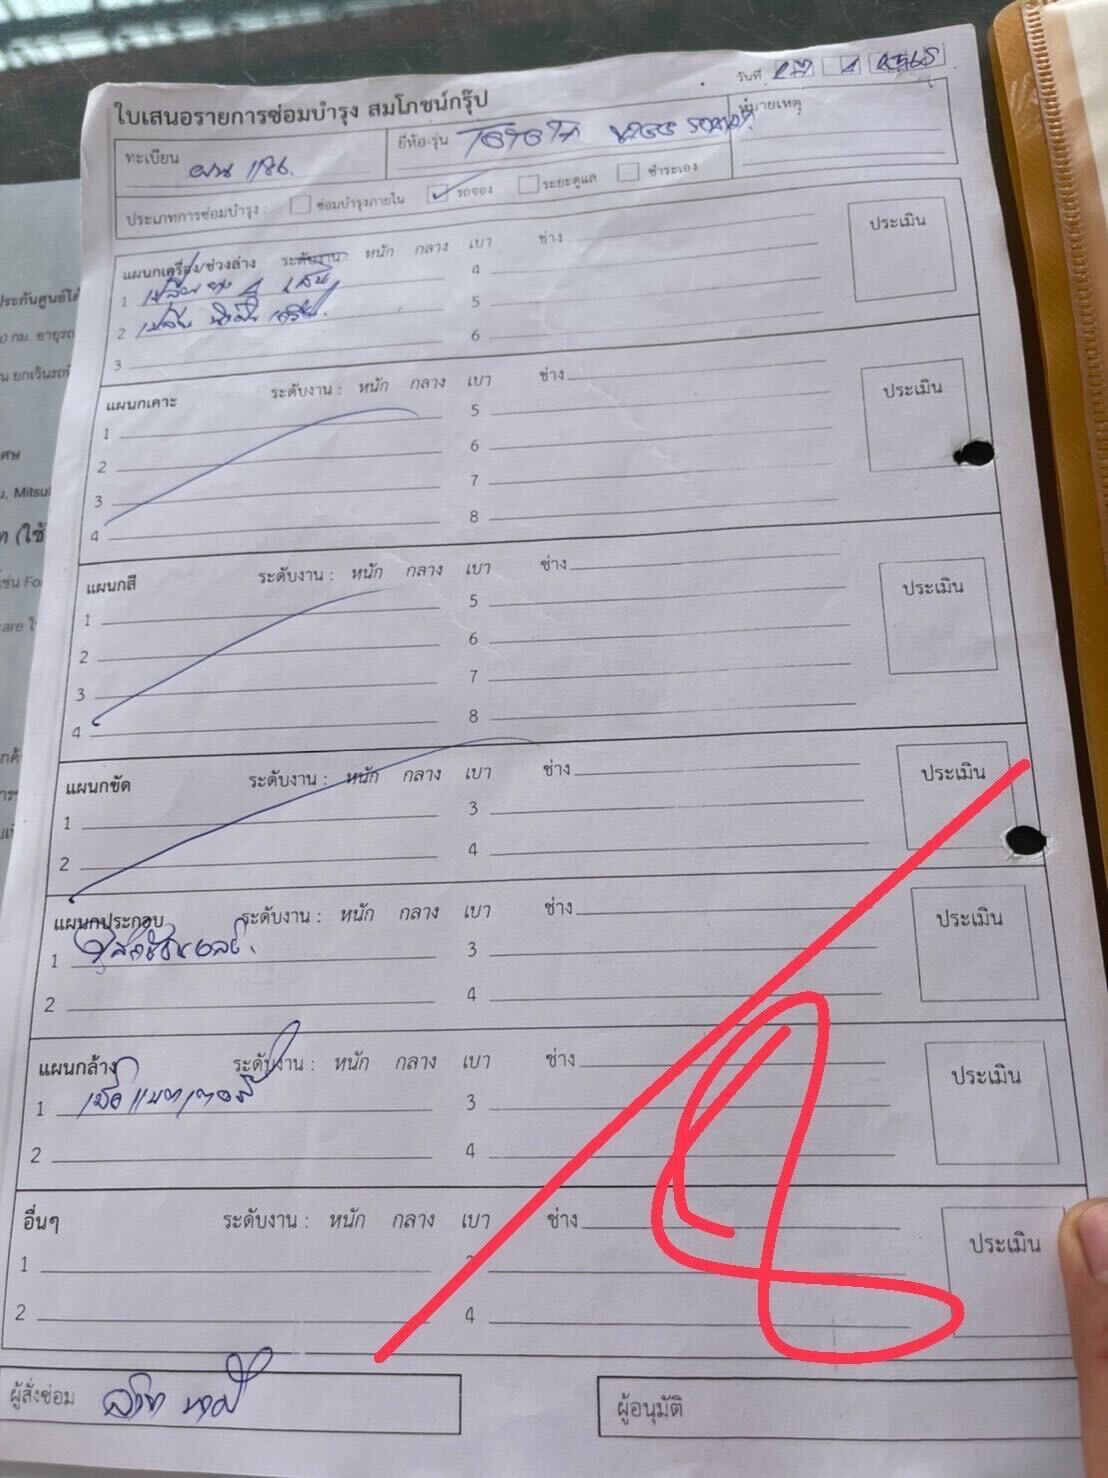 วันที่ 27 1 2565
ใบเสนอรายการซ่อมบำรุง สมโภชน์กรุ๊ป
ทะเบียน ผน 1186. ยี่ห้อ-รุ่น TOYOTA หมายเหตุ
ประเภทการซ่อมบำรุง : ซ่อมบำรุงภายใน รถจอง ระยะดูแล ชำระเอง
แผนกเครื่อง/ช่วงล่าง ระดับงาน: หนัก กลาง เบา ช่าง ประเมิน
1 เปลี่ยน ยาง 4 เส้น 4
2 เปลี่ยน น้ำมันเครื่อง. 5
3 6
แผนกเคาะ ระดับงาน : หนัก กลาง เบา ช่าง ประเมิน
1 5
2 6
3 7
4 8
แผนกสี ระดับงาน : หนัก กลาง เบา ช่าง ประเมิน
1 5
2 6
3 7
4 8
แผนกขัด ระดับงาน : หนัก กลาง เบา ช่าง ประเมิน
1 3
2 4
แผนกประกอบ ระดับงาน : หนัก กลาง เบา ช่าง ประเมิน
1 3
2 4
แผนกล้าง ระดับงาน : หนัก กลาง เบา ช่าง ประเมิน
1 แบตเตอรี่ 3
2 4
อื่นๆ ระดับงาน : หนัก กลาง เบา ช่าง ประเมิน
1
2 4
ผู้สั่งซ่อม ผู้อนุมัติ